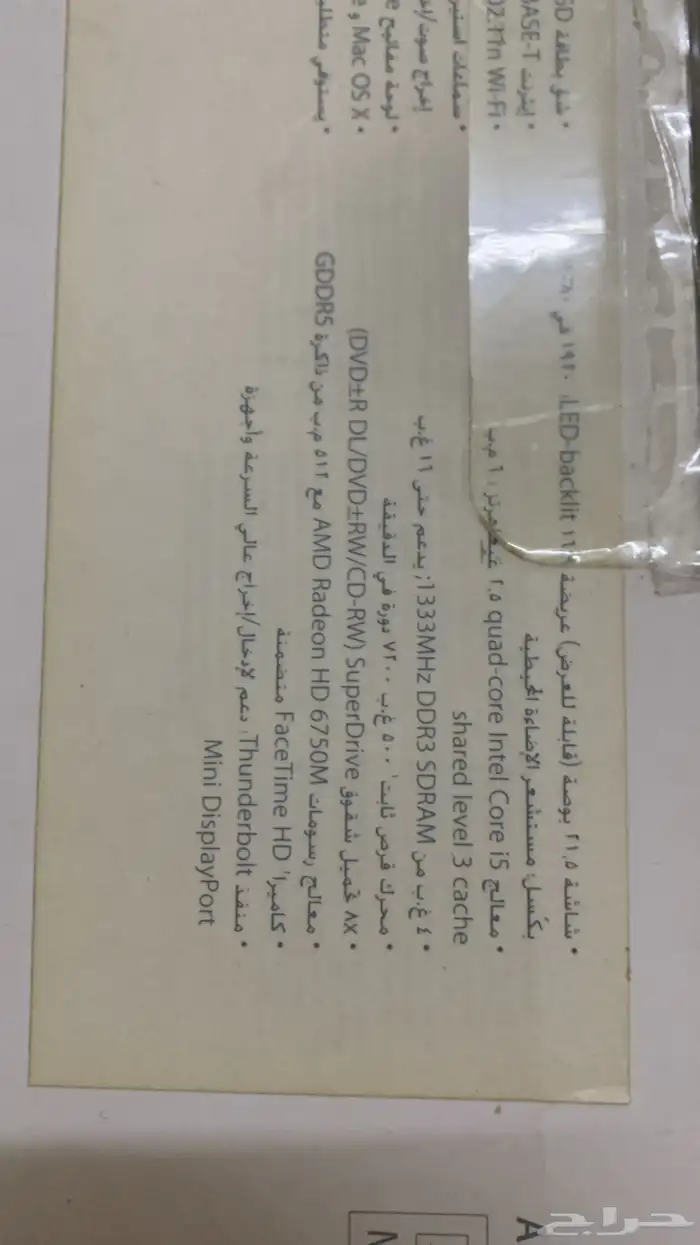 • شاشة ٢١,٥ بوصة (قابلة للعرض) عريضة LED-backlit ١٦ ١٩٢٠ في
بكسل; مستشعر الإضاءة المحيطية
• معالج quad-core Intel Core i5 ٢,٥ غيغاهرتز، ٦ م.ب
shared level 3 cache
• ٤ غ.ب من 1333MHz DDR3 SDRAM; يدعم حتى ١٦ غ.ب
• محرك قرص ثابت¹ ٥٠٠ غ.ب ٧٢٠٠ دورة في الدقيقة
• ٨X تحميل شقوق SuperDrive (DVD±R DL/DVD±RW/CD-RW)
• معالج رسومات AMD Radeon HD 6750M مع ٥١٢ م.ب من ذاكرة GDDR5
• كاميرا FaceTime HD متضمنة
• منفذ Thunderbolt، دعم لإدخال/إخراج عالي السرعة وأجهزة
Mini DisplayPort
• شق بطاقة SD
• إيثرنت BASE-T
02.11n Wi-Fi •
• سماعات
إخراج صوت
• لوحة مفاتيح
• Mac OS X و
• يستوفي
A
حراج